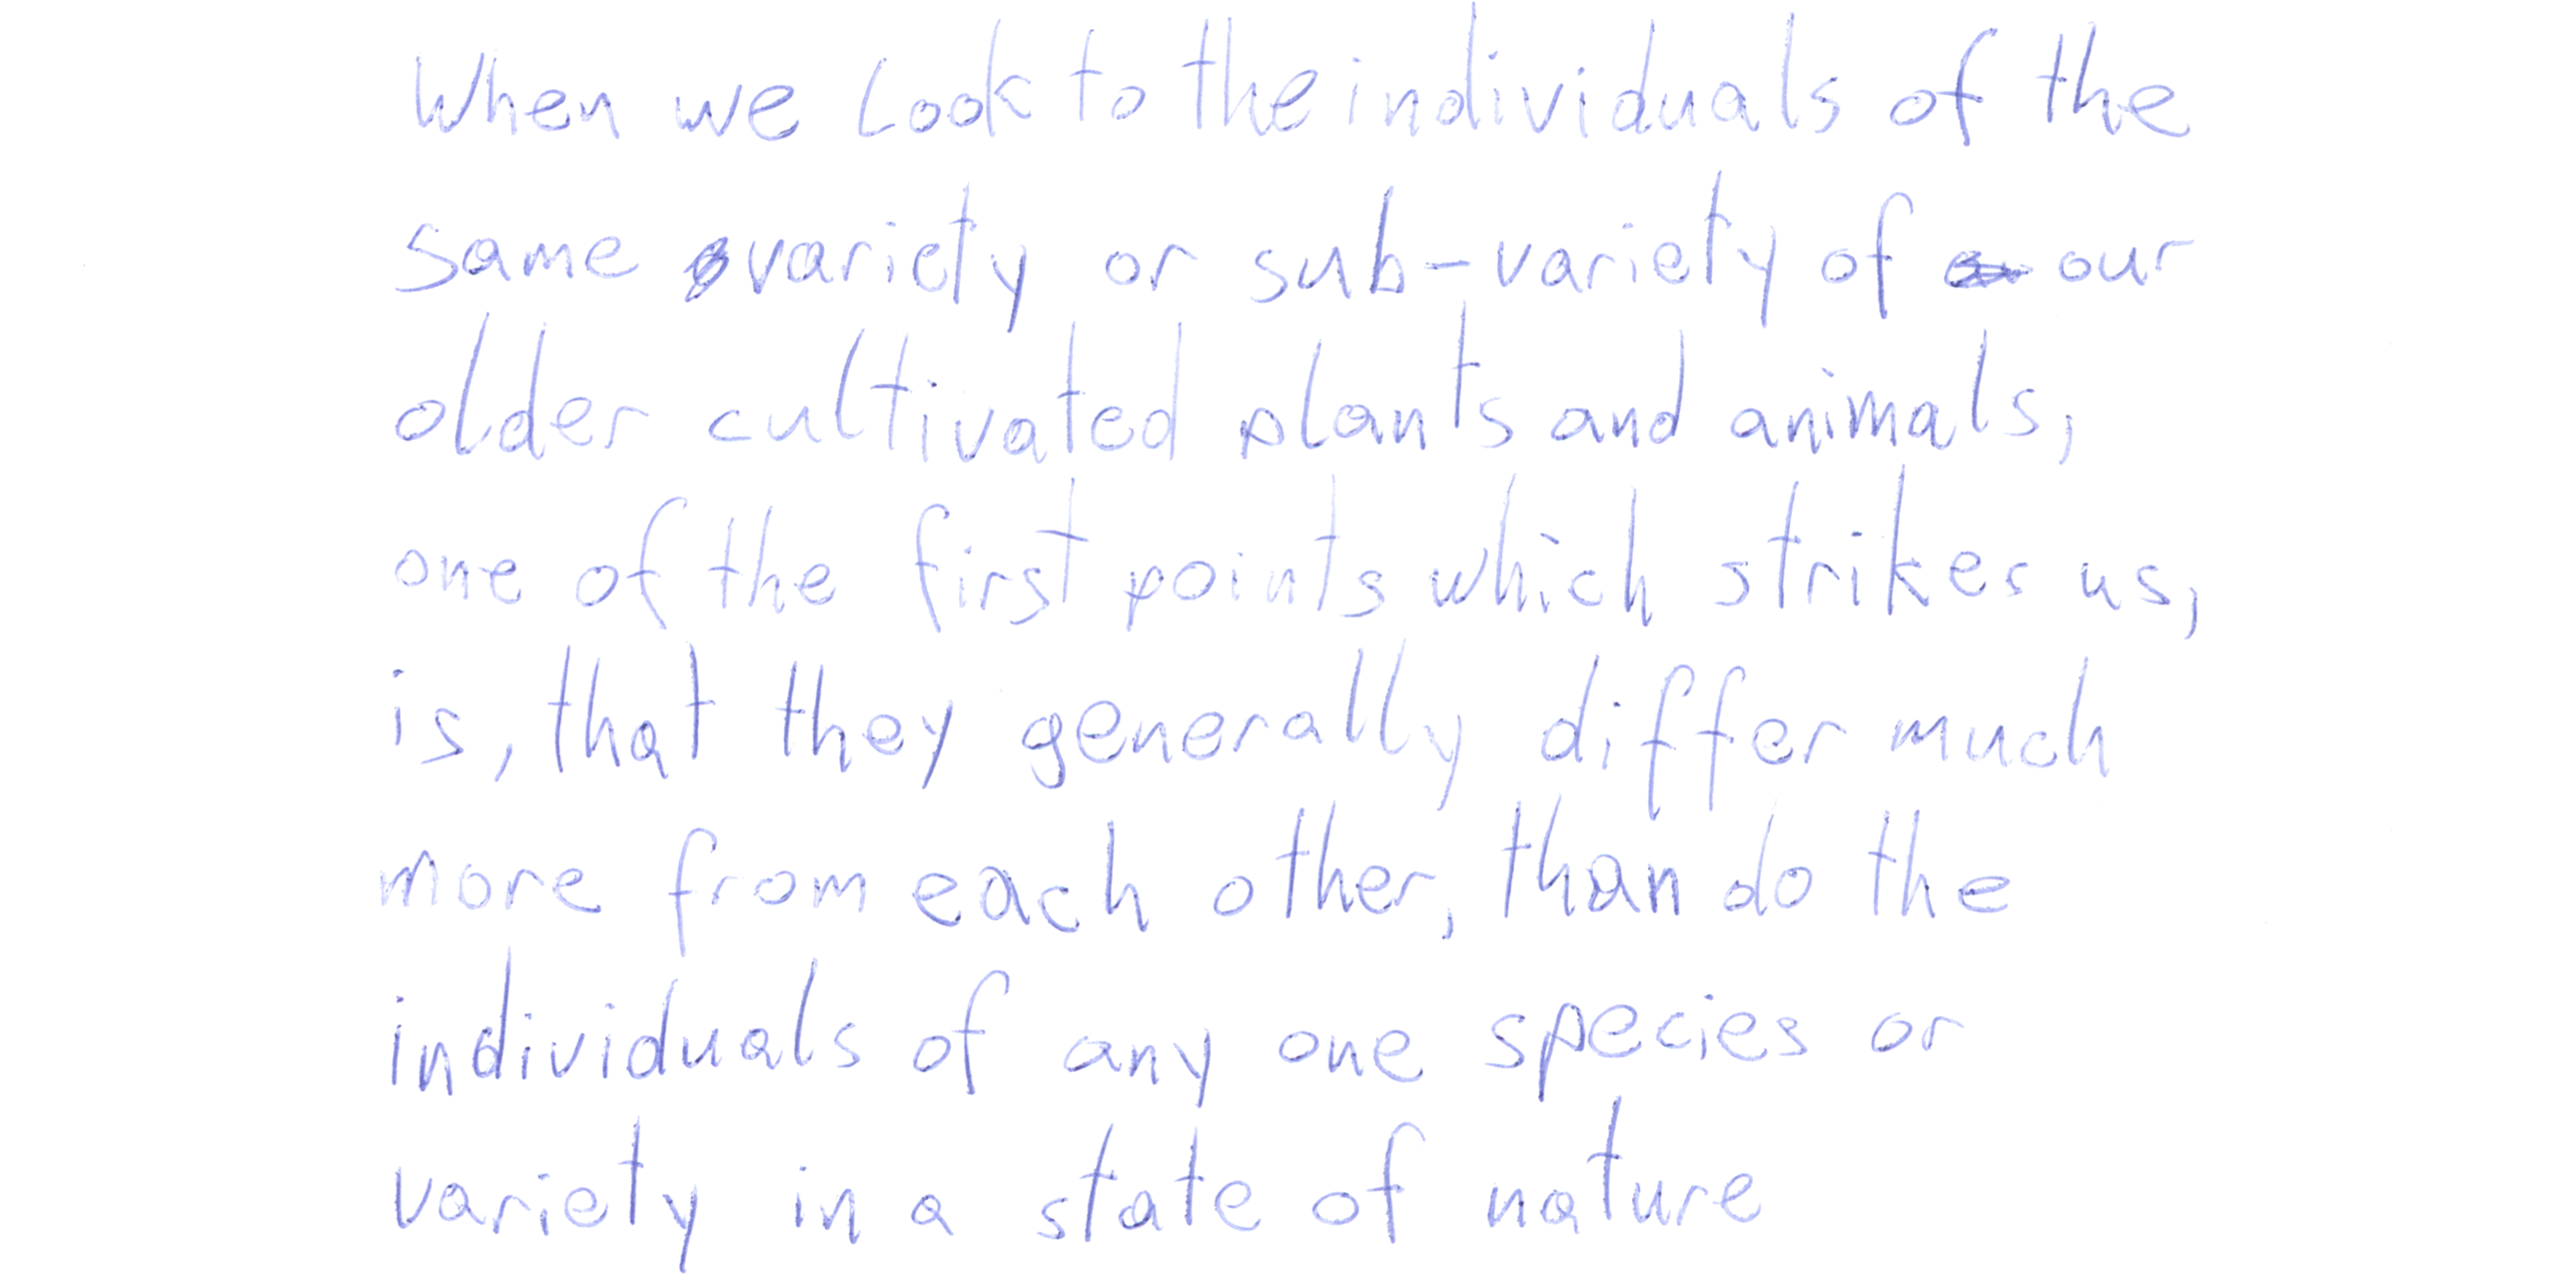 When we look to the individuals of the
same variety or sub-variety of our
older cultivated plants and animals,
one of the first points which strikes us,
is, that they generally differ much
more from each other, than do the
individuals of any one species or
variety in a state of nature